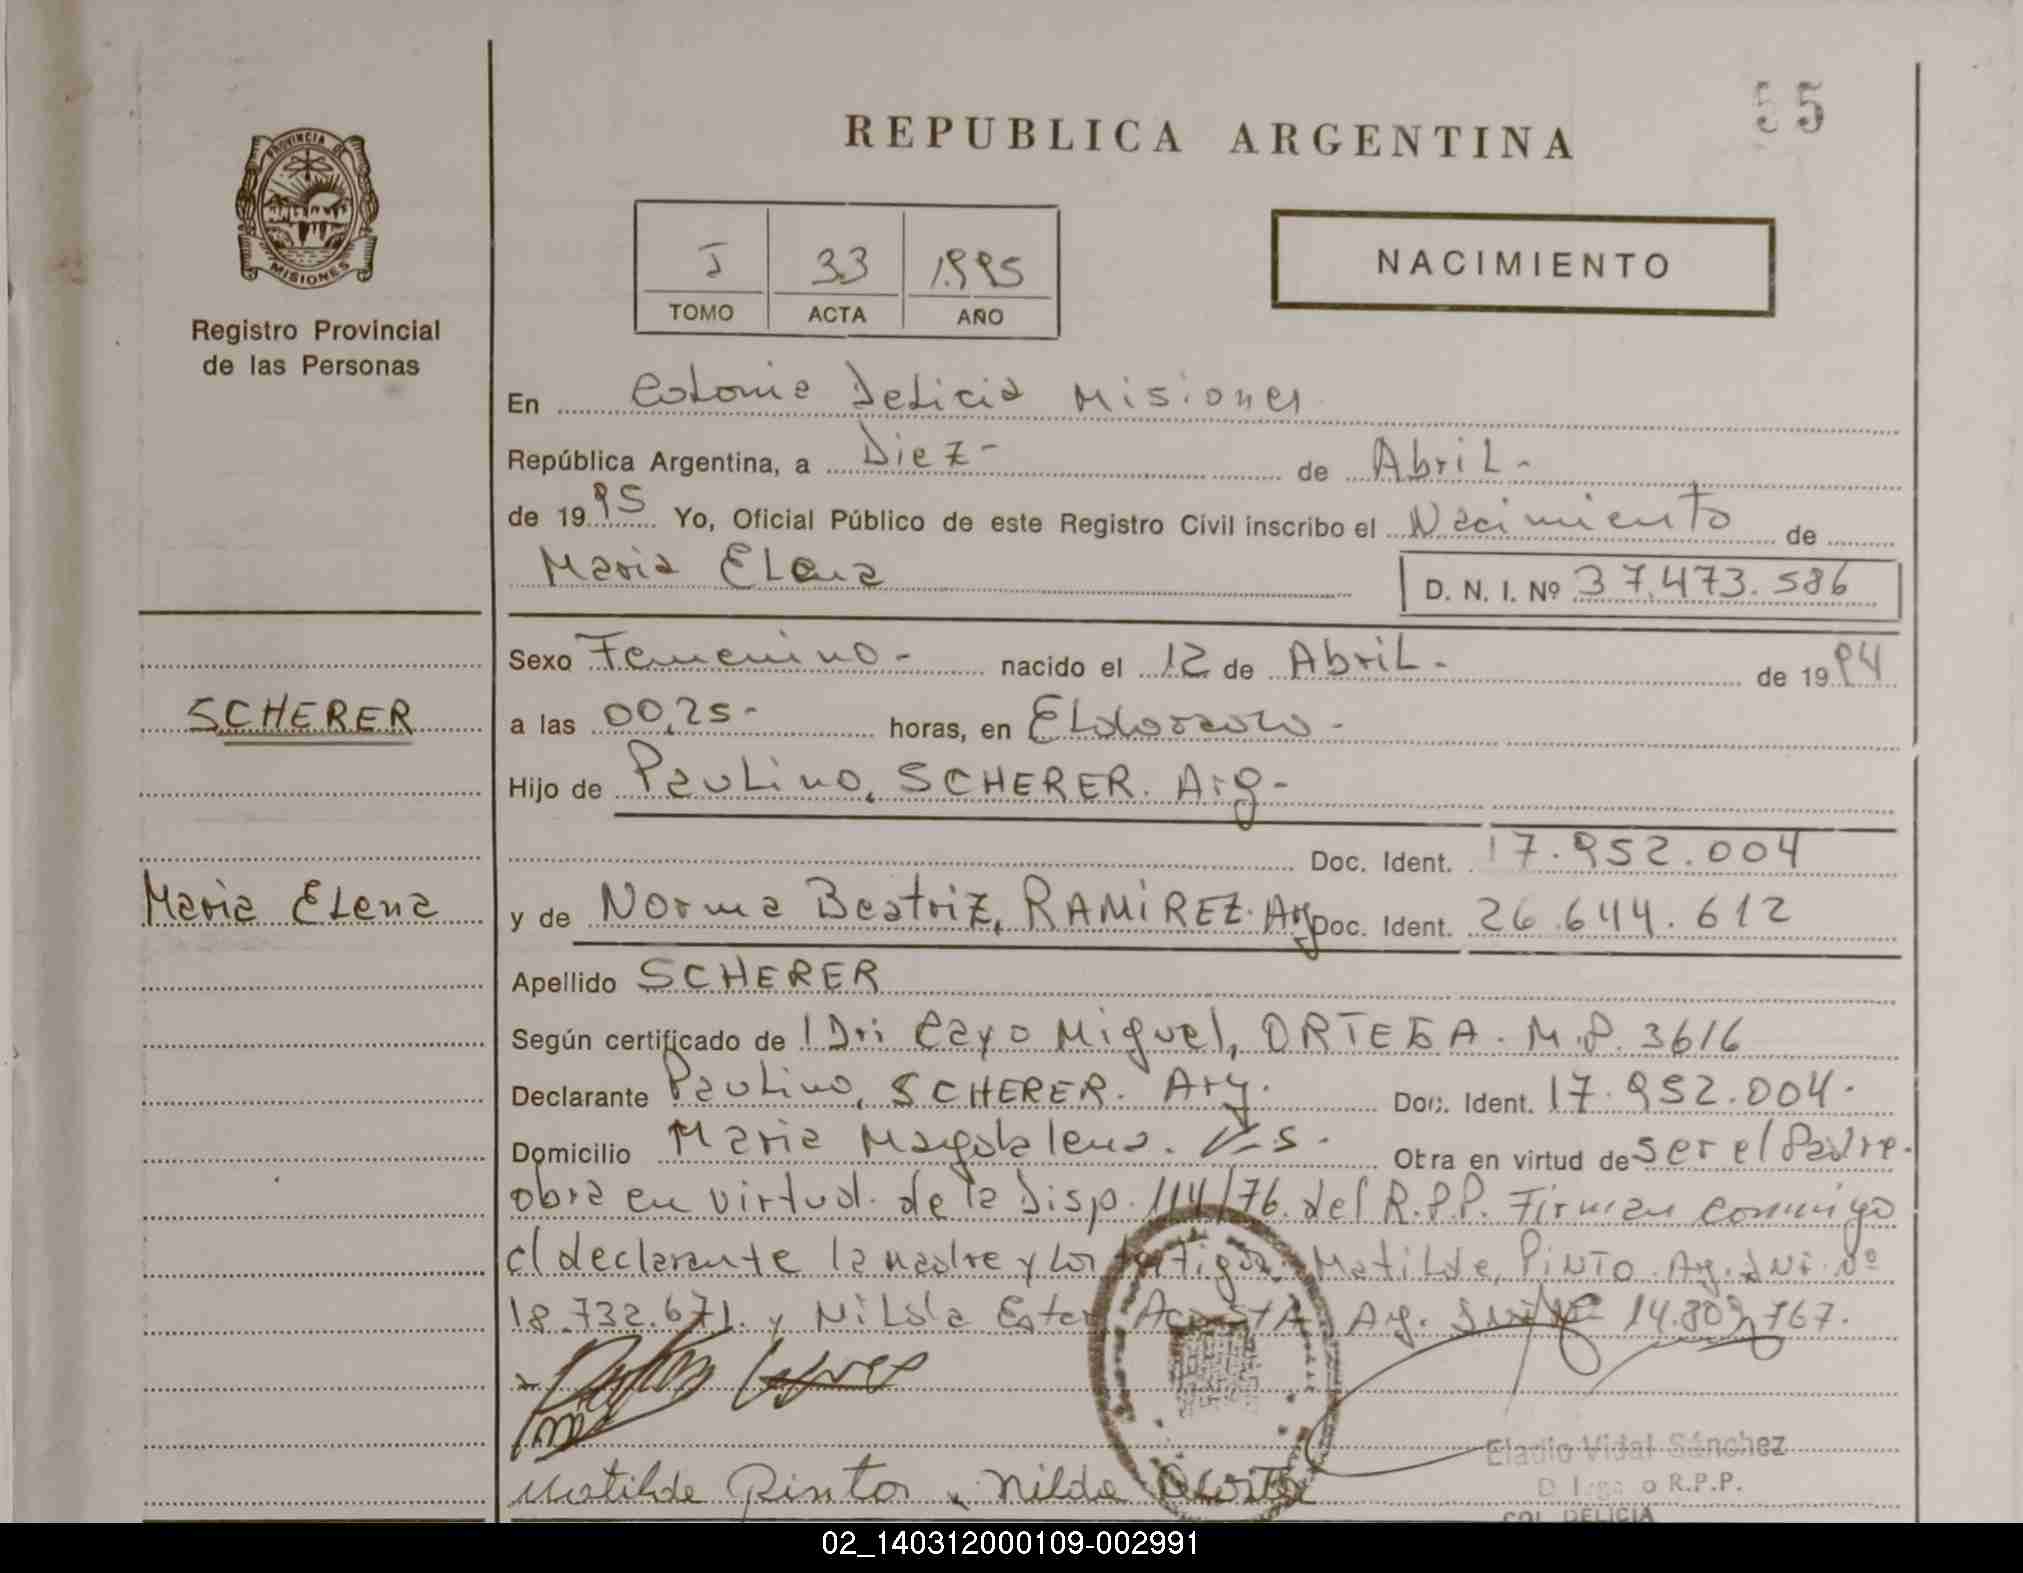 55
REPUBLICA ARGENTINA
PROVINCIA DE
MISIONES
Registro Provincial
de las Personas
I 33 1.995
TOMO ACTA AÑO
NACIMIENTO
En Colonia Delicia Misiones
República Argentina, a Diez- de Abril-
de 1995 Yo, Oficial Público de este Registro Civil inscribo el Nacimiento de
Maria Elena D. N. I. Nº 37.473.586
Sexo Femenino- nacido el 12 de Abril- de 1994
SCHERER
a las 00,25- horas, en Eldorado-
Hijo de Paulino, SCHERER. Arg-
Doc. Ident. 17.952.004
Maria Elena
y de Norma Beatriz, RAMIREZ. Arg Doc. Ident. 26.644.612
Apellido SCHERER
Según certificado de Cayo Miguel, ORTEGA. M.P. 3616
Declarante Paulino, SCHERER. Arg. Doc. Ident. 17.952.004.
Domicilio Maria Magdalena. Otra en virtud de ser el Padre.
obra en virtud. de la Disp. 114/76. del R.P.P. Firman conmigo
el declarante la madre y los testigos Matilde, PINTO. Arg. DNI. Nº
18.732.671. y Nilda Ester Acosta Arg. 14.809.767.
Matilde Pinto Nilda Acosta
Eladio Vidal Sánchez
R.P.P.
COL. DELICIA
02_140312000109-002991